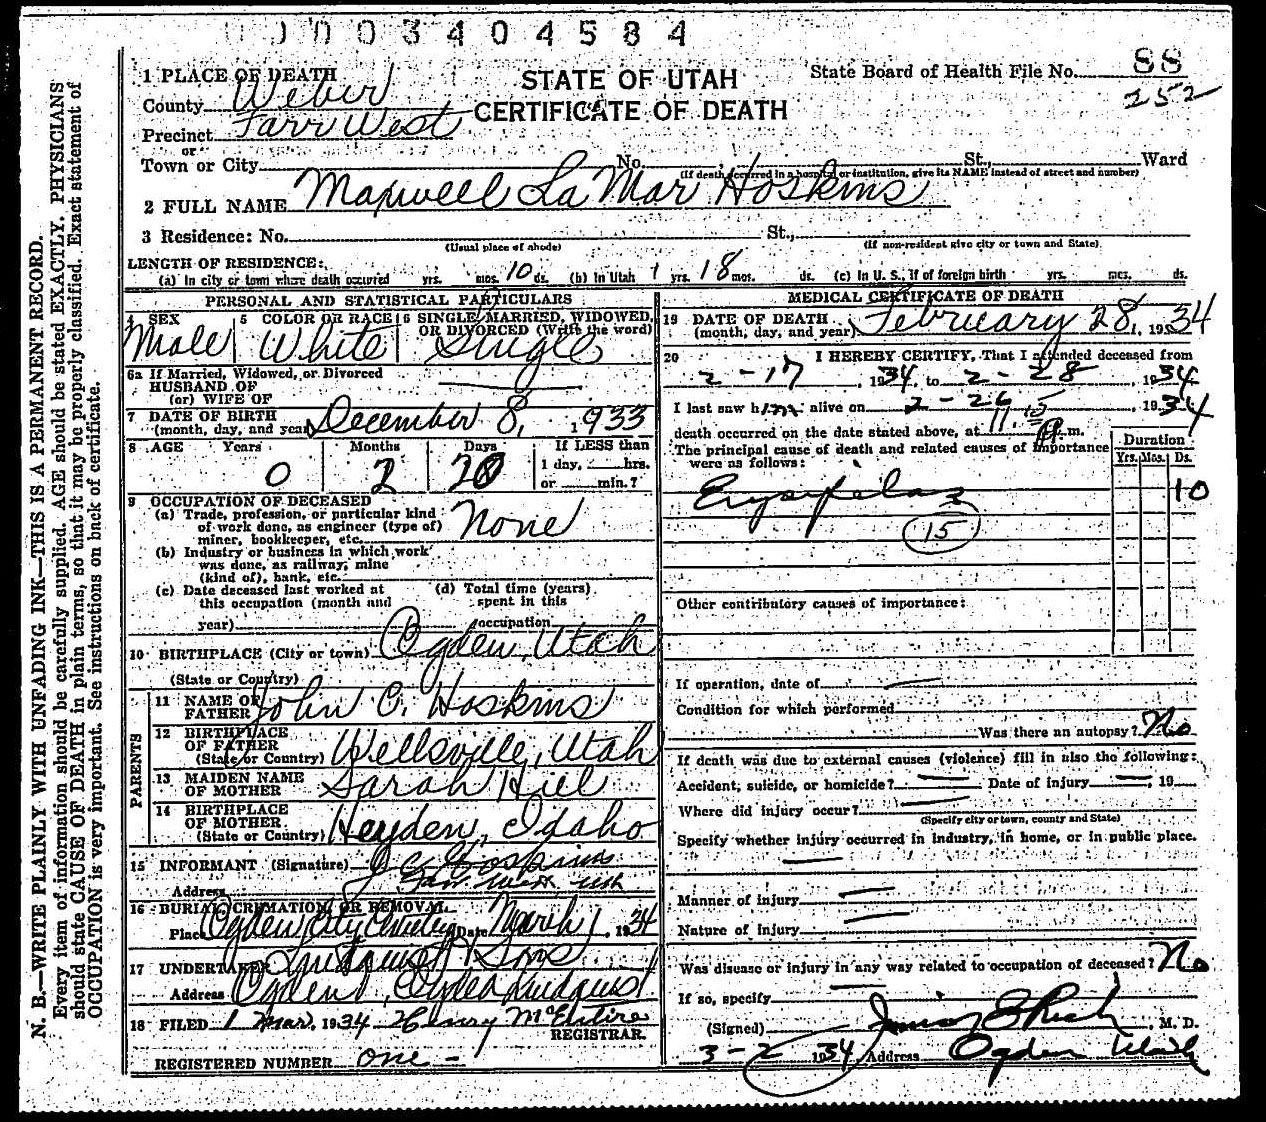 0003404584
1 PLACE OF DEATH
STATE OF UTAH
State Board of Health File No. 88
County Weber
CERTIFICATE OF DEATH
252
Precinct Farr West
or
Town or City No. , St., Ward
(If death occurred in a hospital or institution, give its NAME instead of street and number)
2 FULL NAME Maxwell La Mar Hoskins
3 Residence: No. St.,
(Usual place of abode) (If non-resident give city or town and State)
LENGTH OF RESIDENCE:
(a) In city or town where death occurred yrs. mos. 10 ds. (b) In Utah 1 yrs. 18 mos. ds. (c) In U. S., if of foreign birth yrs. mos. ds.
PERSONAL AND STATISTICAL PARTICULARS
4 SEX 5 COLOR OR RACE 6 SINGLE, MARRIED, WIDOWED,
OR DIVORCED (Write the word)
Male White Single
6a If Married, Widowed, or Divorced
HUSBAND OF
(or) WIFE OF
7 DATE OF BIRTH
(month, day, and year) December 8, 1933
8 AGE Years Months Days If LESS than
1 day, hrs.
0 2 20
or min.?
9 OCCUPATION OF DECEASED
(a) Trade, profession, or particular kind
of work done, as engineer (type of) None
miner, bookkeeper, etc.
(b) Industry or business in which work
was done, as railway, mine
(kind of), bank, etc.
(c) Date deceased last worked at (d) Total time (years)
this occupation (month and spent in this
year) occupation
10 BIRTHPLACE (City or town) Ogden, Utah
(State or Country)
PARENTS
11 NAME OF
FATHER John C. Hoskins
12 BIRTHPLACE
OF FATHER
(State or Country) Wellsville, Utah
13 MAIDEN NAME
OF MOTHER Sarah Hiel
14 BIRTHPLACE
OF MOTHER
(State or Country) Heyden, Idaho
15 INFORMANT (Signature) J C Hoskins
Address Farr West Utah
16 BURIAL, CREMATION, OR REMOVAL
Place Ogden City Cemetery Date March 1, 1934
17 UNDERTAKER Lindquist & Sons
Address Ogden, Ogden Lindquist
18 FILED 1 Mar. 1934 Henry McEntire
REGISTRAR.
REGISTERED NUMBER one -
MEDICAL CERTIFICATE OF DEATH
19 DATE OF DEATH
(month, day, and year) February 28, 1934
20 I HEREBY CERTIFY, That I attended deceased from
2-17, 1934, to 2-28, 1934
I last saw him alive on 2-26, 1934
death occurred on the date stated above, at 11.15 m.
The principal cause of death and related causes of importance
were as follows:
Duration
Yrs. Mos. Ds.
Erysipelas 10
15
Other contributory causes of importance:
If operation, date of
Condition for which performed
Was there an autopsy? No
If death was due to external causes (violence) fill in also the following:
Accident, suicide, or homicide? Date of injury , 19
Where did injury occur?
(Specify city or town, county and State)
Specify whether injury occurred in industry, in home, or in public place.
Manner of injury
Nature of injury
Was disease or injury in any way related to occupation of deceased? No
If so, specify
(Signed) Junior E Rich, M. D.
3-2 1934 Address Ogden Utah
N. B.—WRITE PLAINLY WITH UNFADING INK—THIS IS A PERMANENT RECORD.
Every item of information should be carefully supplied. AGE should be stated EXACTLY. PHYSICIANS
should state CAUSE OF DEATH in plain terms, so that it may be properly classified. Exact statement of
OCCUPATION is very important. See instructions on back of certificate.